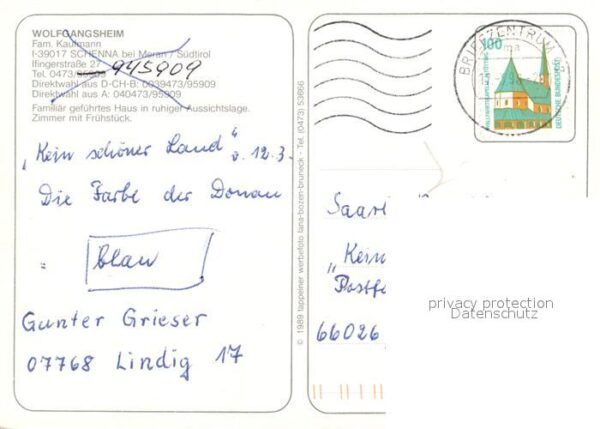 WOLFGANGSHEIM
Fam. Kaufmann
I-39017 SCHENNA bei Meran / Südtirol
Ifingerstraße 27
Tel. 0473/95909 945909
Direktwahl aus D-CH-B: 0039473/95909
Direktwahl aus A: 040473/95909
Familiär geführtes Haus in ruhiger Aussichtslage.
Zimmer mit Frühstück.
"Kein schöner Land" v. 12.3.
Die Farbe der Donau
= blau
Gunter Grieser
07768 Lindig 17
© 1989 tappeiner werbefoto lana-bozen-bruneck - Tel. (0473) 53666
BRIEFZENTRUM
100
WALLFAHRTSKAPELLE ALTÖTTING
DEUTSCHE BUNDESPOST
Saar
"Kein
Postf
66026
privacy protection
Datenschutz